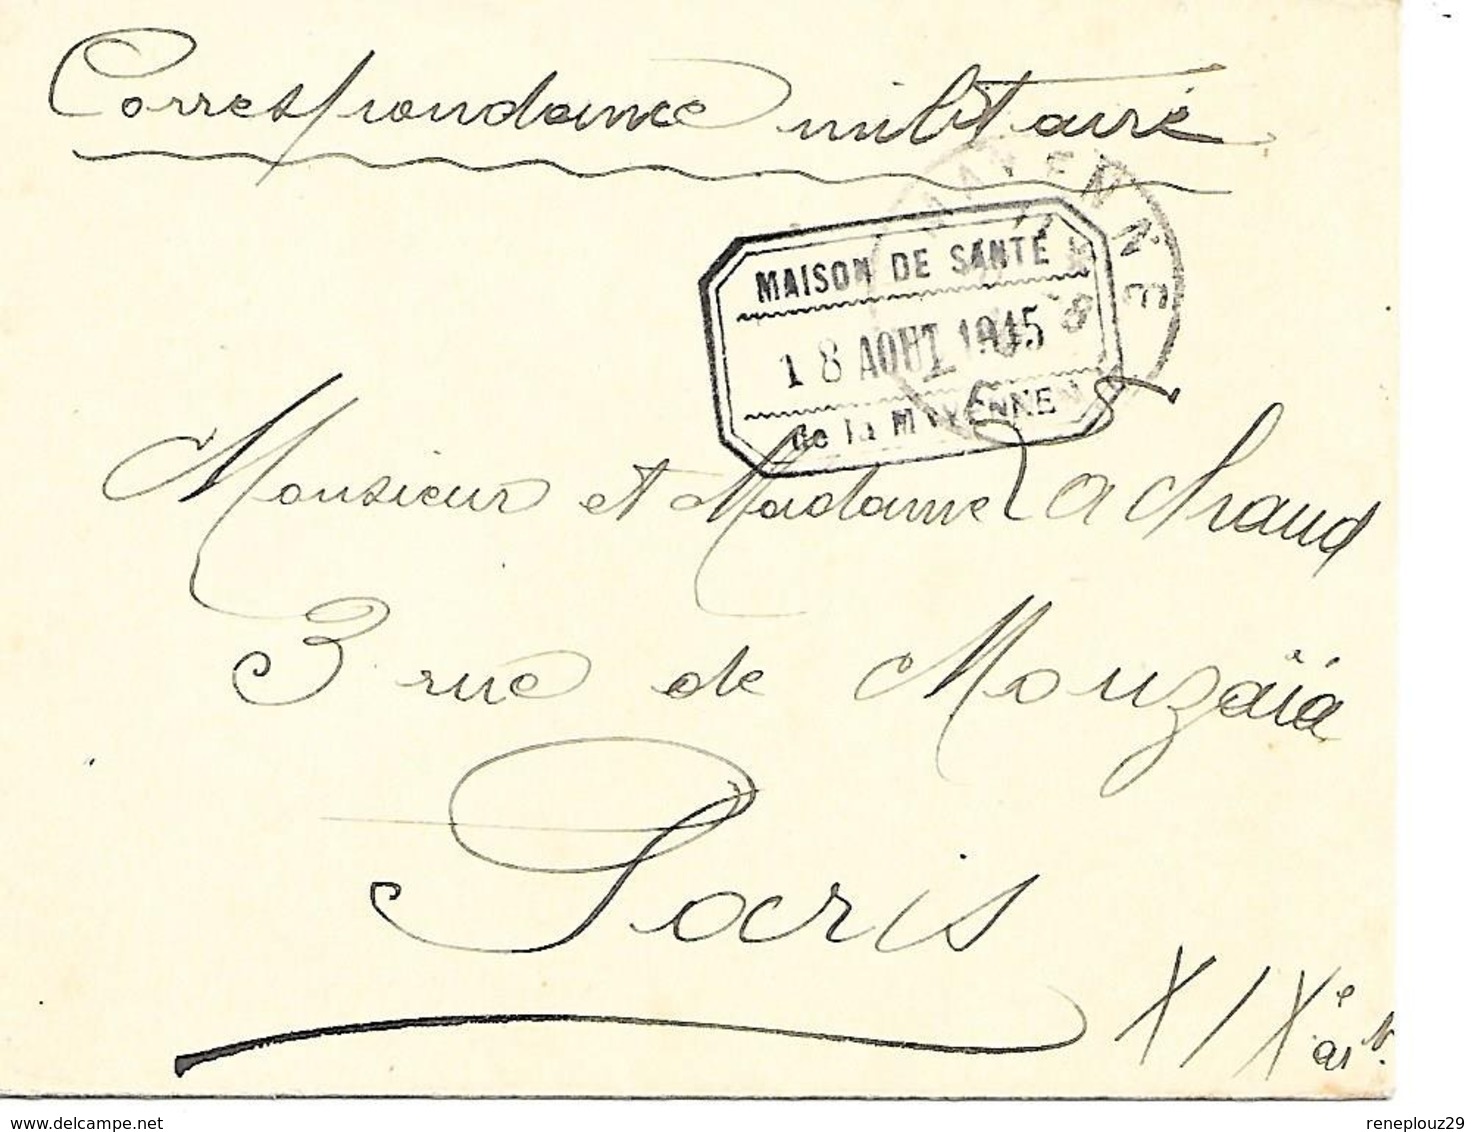 Correspondance militaire
MAYENNE
MAISON DE SANTÉ
18 AOUT 1915
de la MAYENNE
Monsieur et Madame Lachaud
3 rue de Mouzaïa
Paris
XIXe arr.
reneplouz29